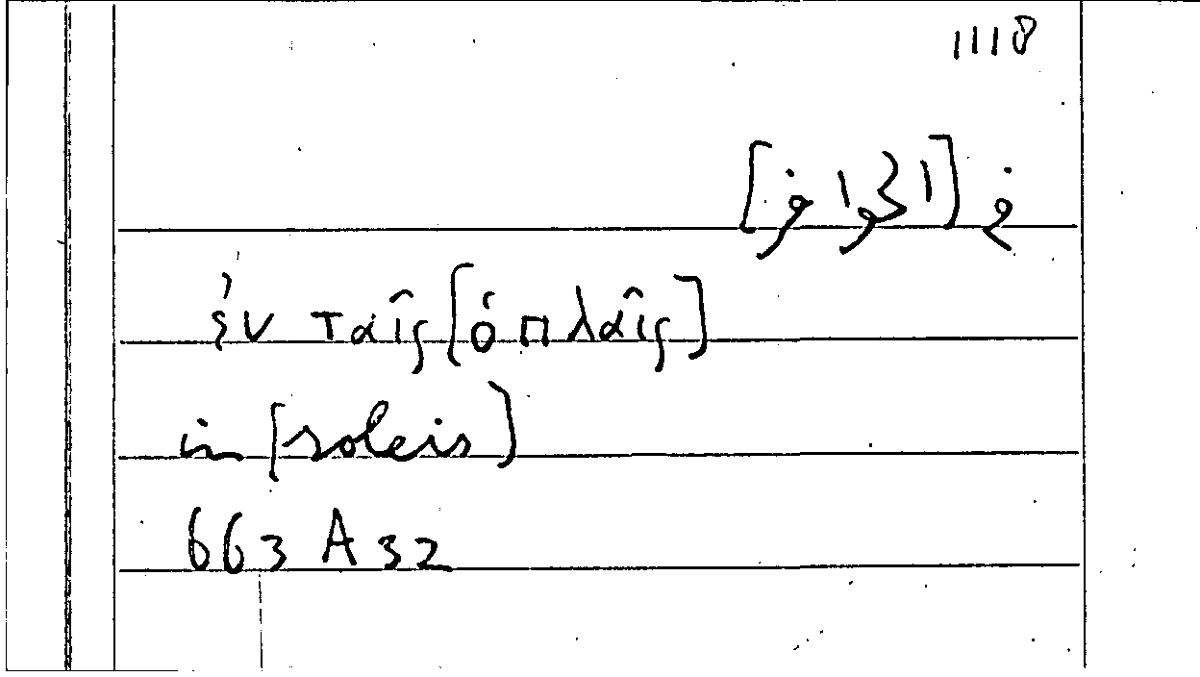 1118
في [الحوافر]
ἐν ταῖς [ὁπλαῖς]
in [soleis]
663 A 32